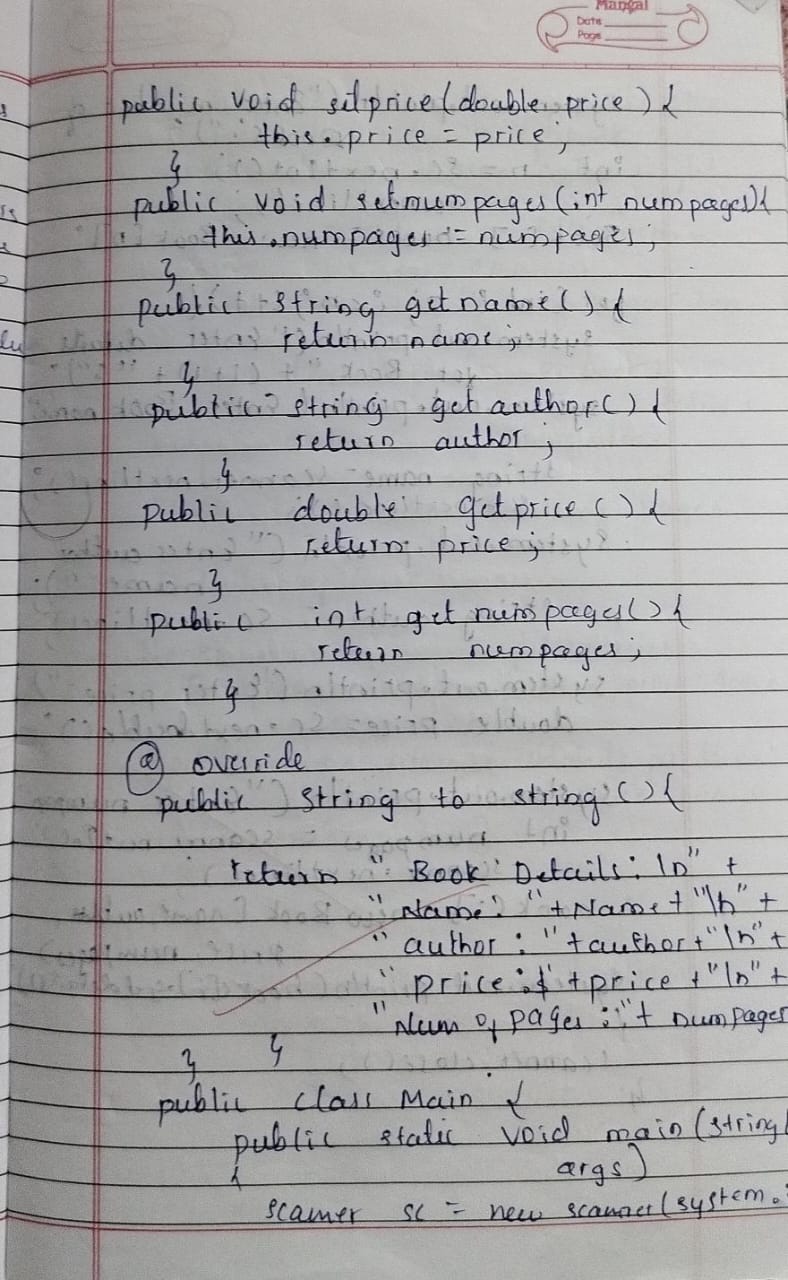 Mangal
Date
Page
public void setprice(double price) {
this.price = price;
}
public void setnumpages(int numpages){
this.numpages = numpages;
}
public string getname() {
return name;
}
public string getauthor() {
return author;
}
public double getprice() {
return price;
}
public int get numpages() {
return numpages;
}
@ override
public String to string() {
return " Book Details: \n" +
"Name: "+Name+"\n"+
"author : "+author+"\n"+
"price:$ +price +"\n"+
"Num of pages :"+ numpages
} }
public class Main {
public static void main(string
args)
{
scanner sc = new scanner(system.